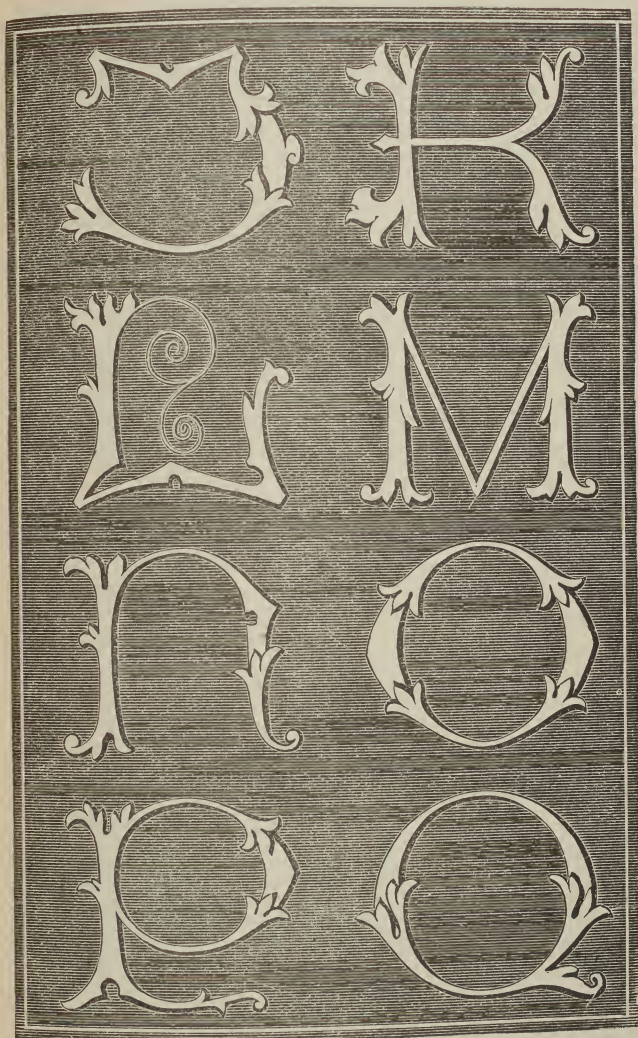 J K
L M
N O
P Q